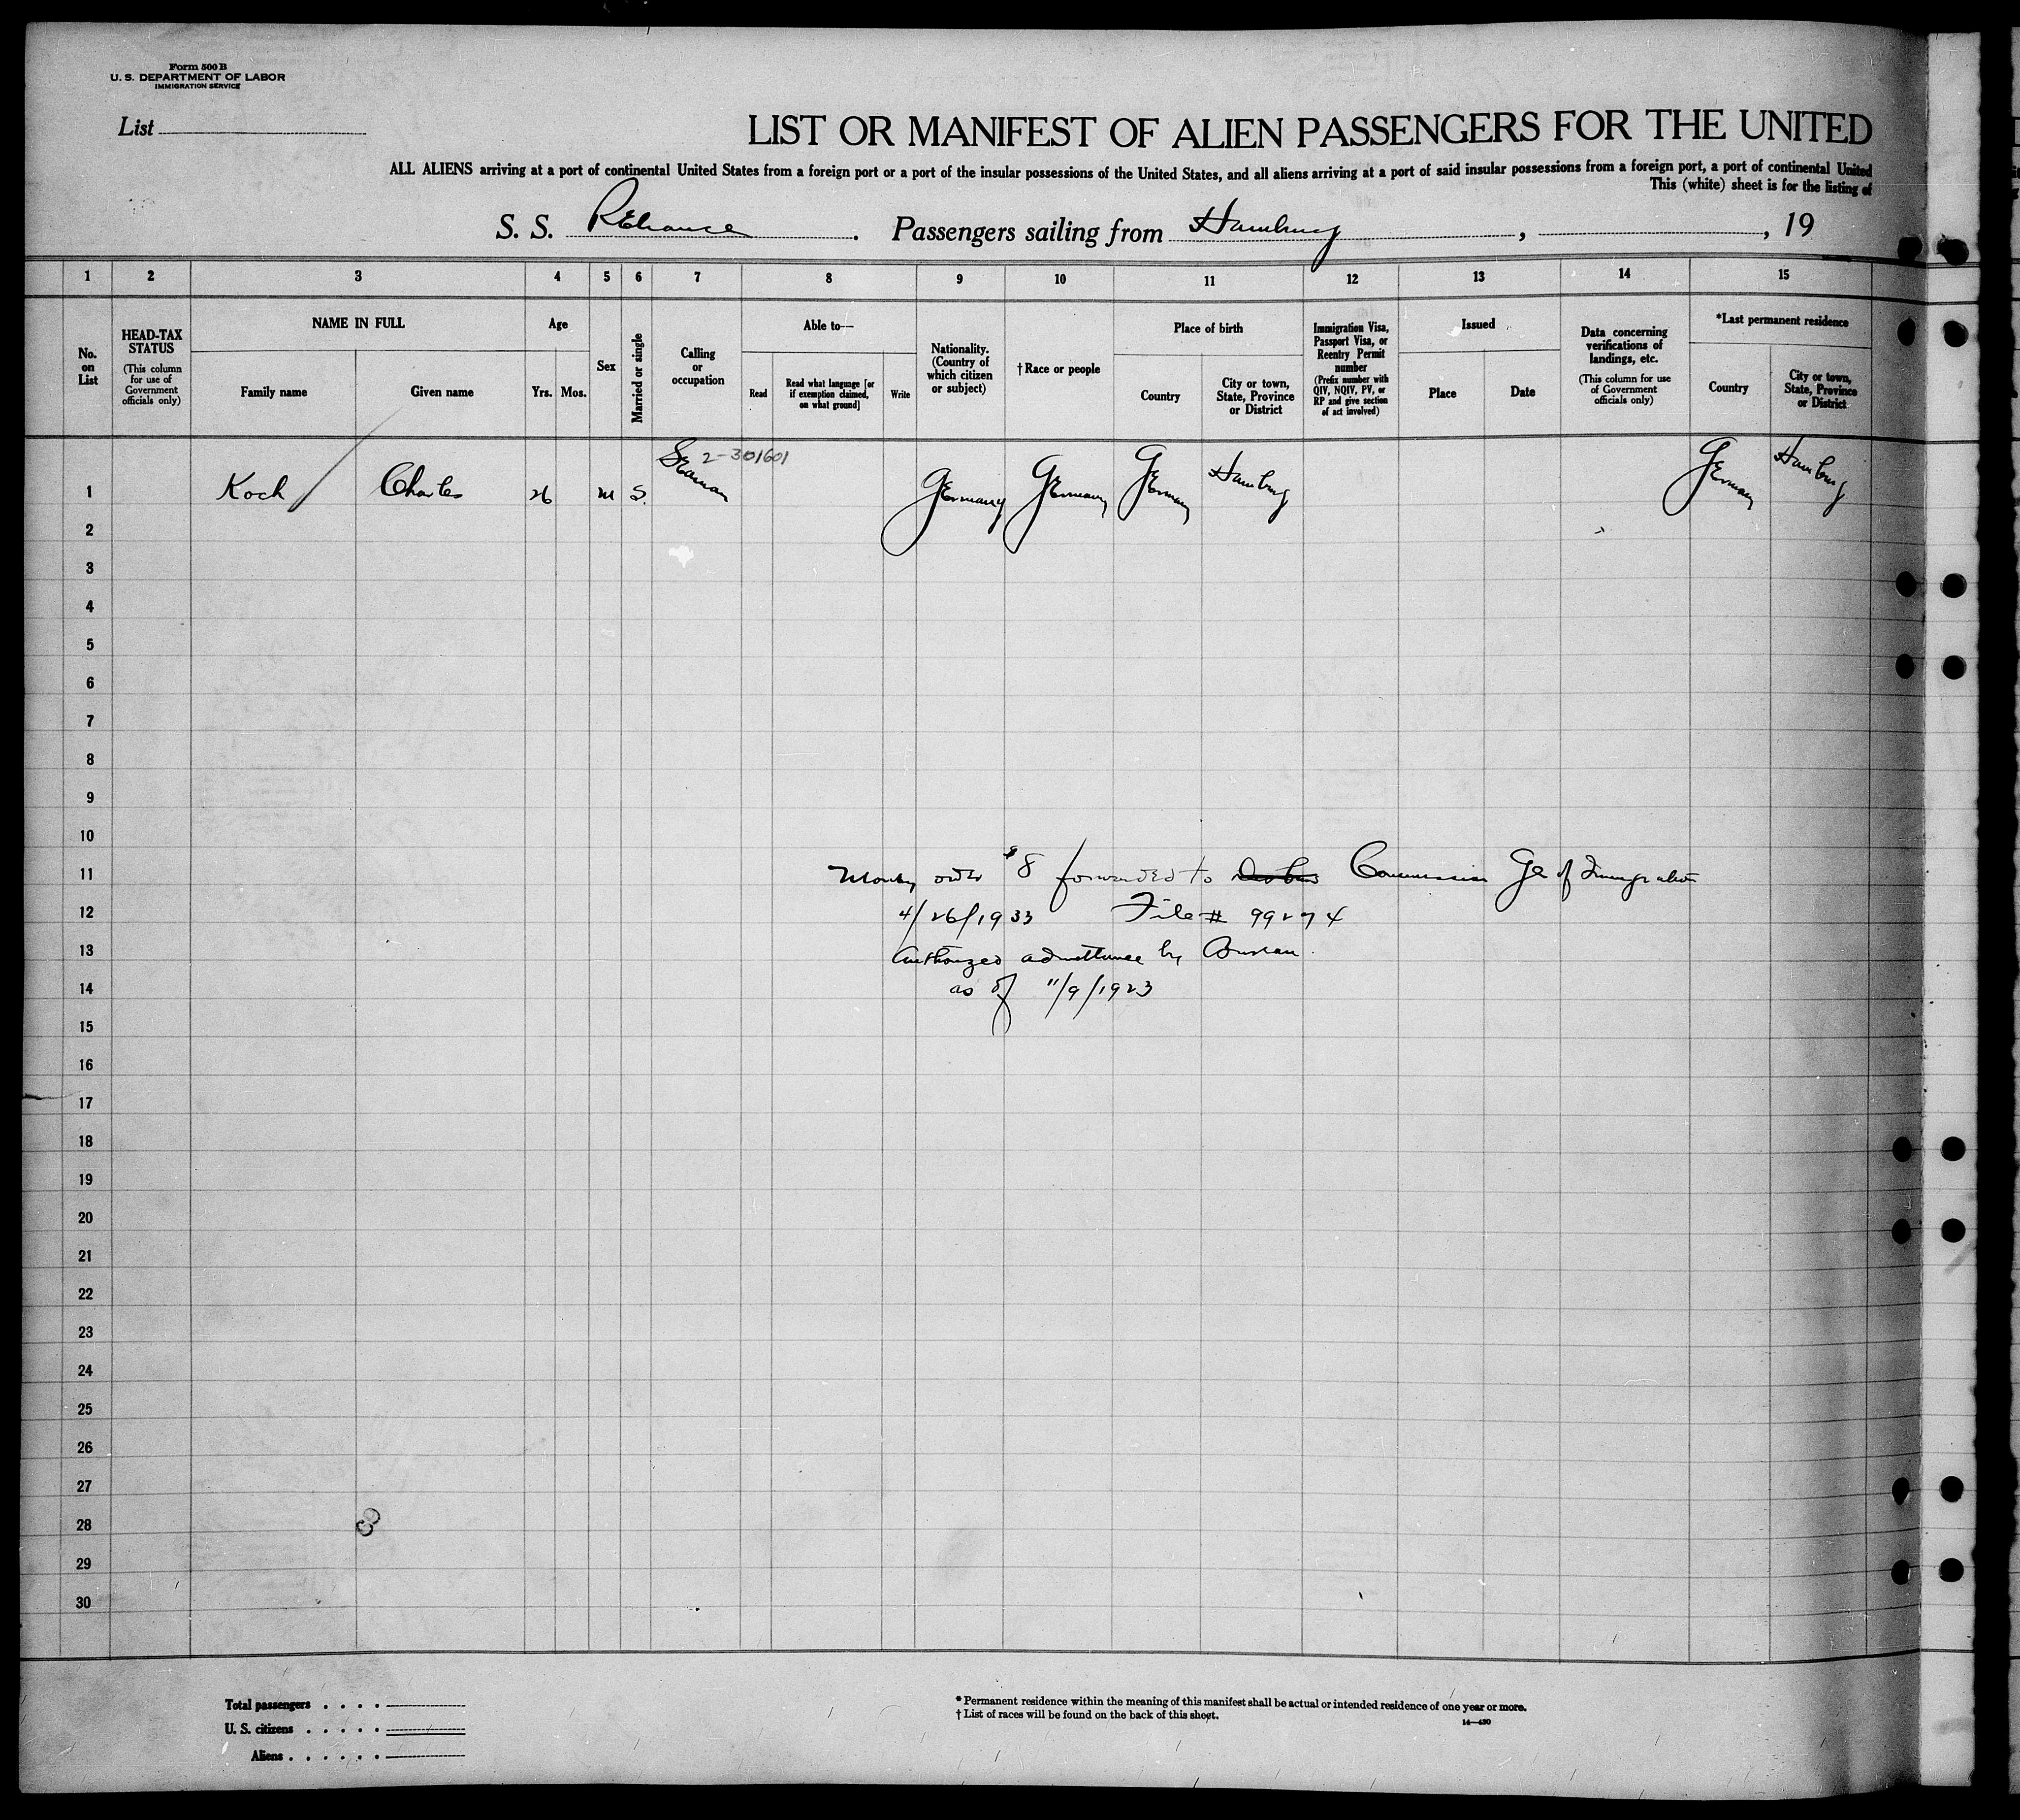 Form 500 B
U. S. DEPARTMENT OF LABOR
IMMIGRATION SERVICE
List
LIST OR MANIFEST OF ALIEN PASSENGERS FOR THE UNITED
ALL ALIENS arriving at a port of continental United States from a foreign port or a port of the insular possessions of the United States, and all aliens arriving at a port of said insular possessions from a foreign port, a port of continental United
This (white) sheet is for the listing of
S. S. Reliance . Passengers sailing from Hamburg , , 19
1 2 3 4 5 6 7 8 9 10 11 12 13 14 15
No. on List
HEAD-TAX STATUS (This column for use of Government officials only)
NAME IN FULL
Family name Given name
Age
Yrs. Mos.
Sex
Married or single
Calling or occupation
Able to—
Read
Read what language [or if exemption claimed, on what ground]
Write
Nationality. (Country of which citizen or subject)
†Race or people
Place of birth
Country
City or town, State, Province or District
Immigration Visa, Passport Visa, or Reentry Permit number (Prefix number with QIV, NQIV, PV, or RP and give section of act involved)
Issued
Place Date
Data concerning verifications of landings, etc. (This column for use of Government officials only)
*Last permanent residence
Country
City or town, State, Province or District
2-301601
1 Koch Charles 26 M S. Seaman Germany Germany Germany Hamburg Germany Hamburg
2
3
4
5
6
7
8
9
10
11 Money order $8 forwarded to Commission Ge of Immigration
12 4/26/1933 File # 99274
13 Authorized admittance by Bureau.
14 as of 11/9/1923
15
16
17
18
19
20
21
22
23
24
25
26
27
28
29
30
Total passengers . . . .
U. S. citizens . . . . .
Aliens . . . . . .
* Permanent residence within the meaning of this manifest shall be actual or intended residence of one year or more.
† List of races will be found on the back of this sheet.
14—430